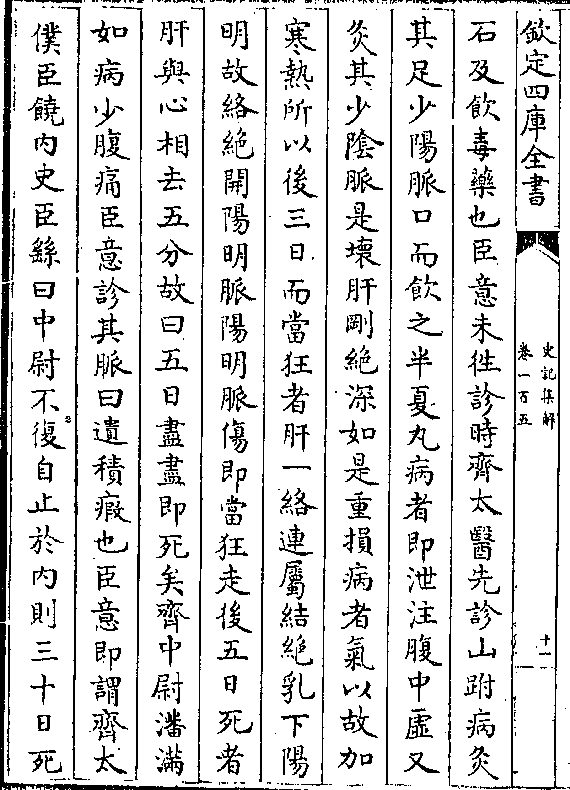 欽定四庫全書
史記集解
卷一百五
十一
石及飲毒藥也臣意未徃診時齊太醫先診山跗病灸
其足少陽脈口而飲之半夏丸病者即泄注腹中虛又
灸其少陰脈是壊肝剛絶深如是重損病者氣以故加
寒熱所以後三日而當狂者肝一絡連屬結絶乳下陽
明故絡絶開陽明脈陽明脈傷即當狂走後五日死者
肝與心相去五分故曰五日盡盡即死矣齊中尉潘滿
如病少腹痛臣意診其脈曰遺積瘕也臣意即謂齊太
僕臣饒内史臣繇曰中尉不復自止於内則三十日死